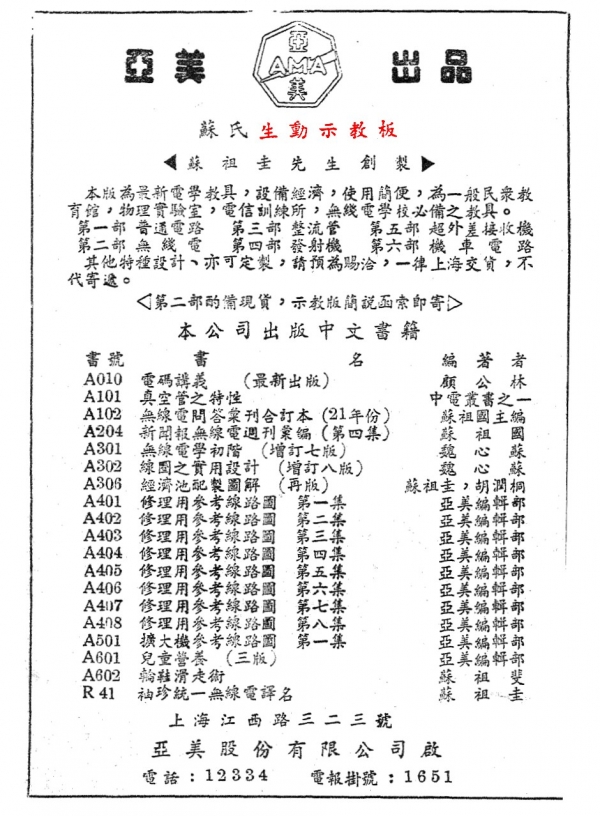 亞美 出品
亞
AMA
美
蘇氏生動示教板
◀蘇祖圭先生創製▶
本版為最新電學教具，設備經濟，使用簡便，為一般民衆教
育館，物理實驗室，電信訓練所，無綫電學校必備之教具。
第一部 普通電路 第三部 整流管 第五部 超外差接收機
第二部 無綫電 第四部 發射機 第六部 機車電路
其他特種設計、亦可定製，請預為賜洽，一律上海交貨，不
代寄遞。
◁第二部酌備現貨，示教版簡説函索即寄▷
本公司出版中文書籍
書號 書名 編著者
A010 電碼講義 (最新出版) 顧公林
A101 真空管之特性 中電叢書之一
A102 無線電問答彙刊合訂本 (21年份) 蘇祖國主編
A204 新聞報無線電週刊彙編 (第四集) 蘇祖國
A301 無線電學初階 (增訂七版) 魏心蘇
A302 線圈之實用設計 (增訂八版) 魏心蘇
A306 經濟池配製圖解 (再版) 蘇祖圭，胡潤桐
A401 修理用參考線路圖 第一集 亞美編輯部
A402 修理用參考線路圖 第二集 亞美編輯部
A403 修理用參考線路圖 第三集 亞美編輯部
A404 修理用參考線路圖 第四集 亞美編輯部
A405 修理用參考線路圖 第五集 亞美編輯部
A406 修理用參考線路圖 第六集 亞美編輯部
A407 修理用參考線路圖 第七集 亞美編輯部
A408 修理用參考線路圖 第八集 亞美編輯部
A501 擴大機參考線路圖 第一集 亞美編輯部
A601 兒童營養 (三版) 亞美編輯部
A602 輪鞋滑走術 蘇祖斐
R 41 袖珍統一無線電譯名 蘇祖圭
上海江西路三二三號
亞美股份有限公司啟
電話：12334 電報掛號：1651